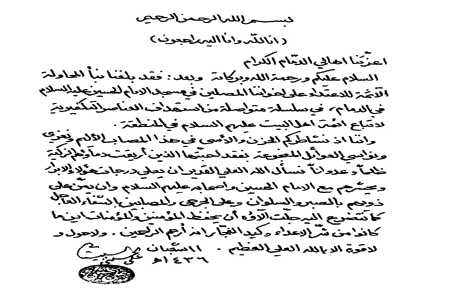 بسم الله الرحمن الرحيم
(انا لله وانا اليه راجعون)
اعزتنا اهالي الدمام الكرام
السلام عليكم ورحمة الله وبركاته وبعد: فقد بلغنا نبأ المحاولة
الآثمة للاعتداء على اخواننا المصلين في مسجد الامام الحسين عليه السلام
في الدمام، في سلسلة متواصلة من استهداف العناصر التكفيرية
لاتباع ائمة اهل البيت عليهم السلام في المنطقة.
واننا اذ نشاطركم الحزن والأسى في هذا المصاب الأليم ونعزي
ونواسي العوائل المفجوعة بفقد احبتها الذين أريقت دماؤهم الزكية
ظلماً وعدواناً نسأل الله العلي القدير ان يعلي درجات هؤلاء الابرار
ويحشرهم مع الامام الحسين واصحابه عليهم السلام وان يمن على
ذويهم بالصبر والسلوان وعلى الجرحى والمصابين بالشفاء العاجل
كما نتضرع اليه جلت آلاؤه أن يحفظ المؤمنين والمؤمنات اينما
كانوا من شر الاعداء وكيد الفجار انه أرحم الراحمين. ولا حول و
لا قوة الا بالله العلي العظيم. ١١ شعبان
١٤٣٦ هـ